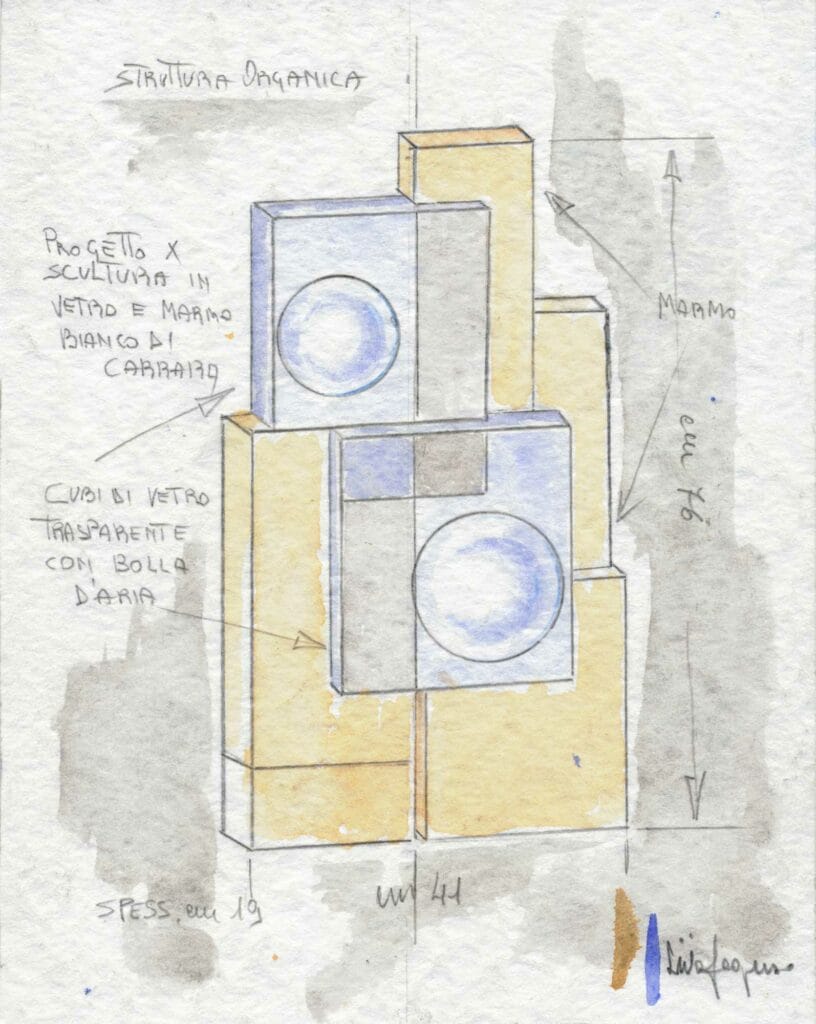 STRUTTURA ORGANICA
PROGETTO X
SCULTURA IN
VETRO E MARMO
BIANCO DI
CARRARA
MARMO
cm 76
CUBI DI VETRO
TRASPARENTE
CON BOLLA
D'ARIA
SPESS. cm 19
cm 41